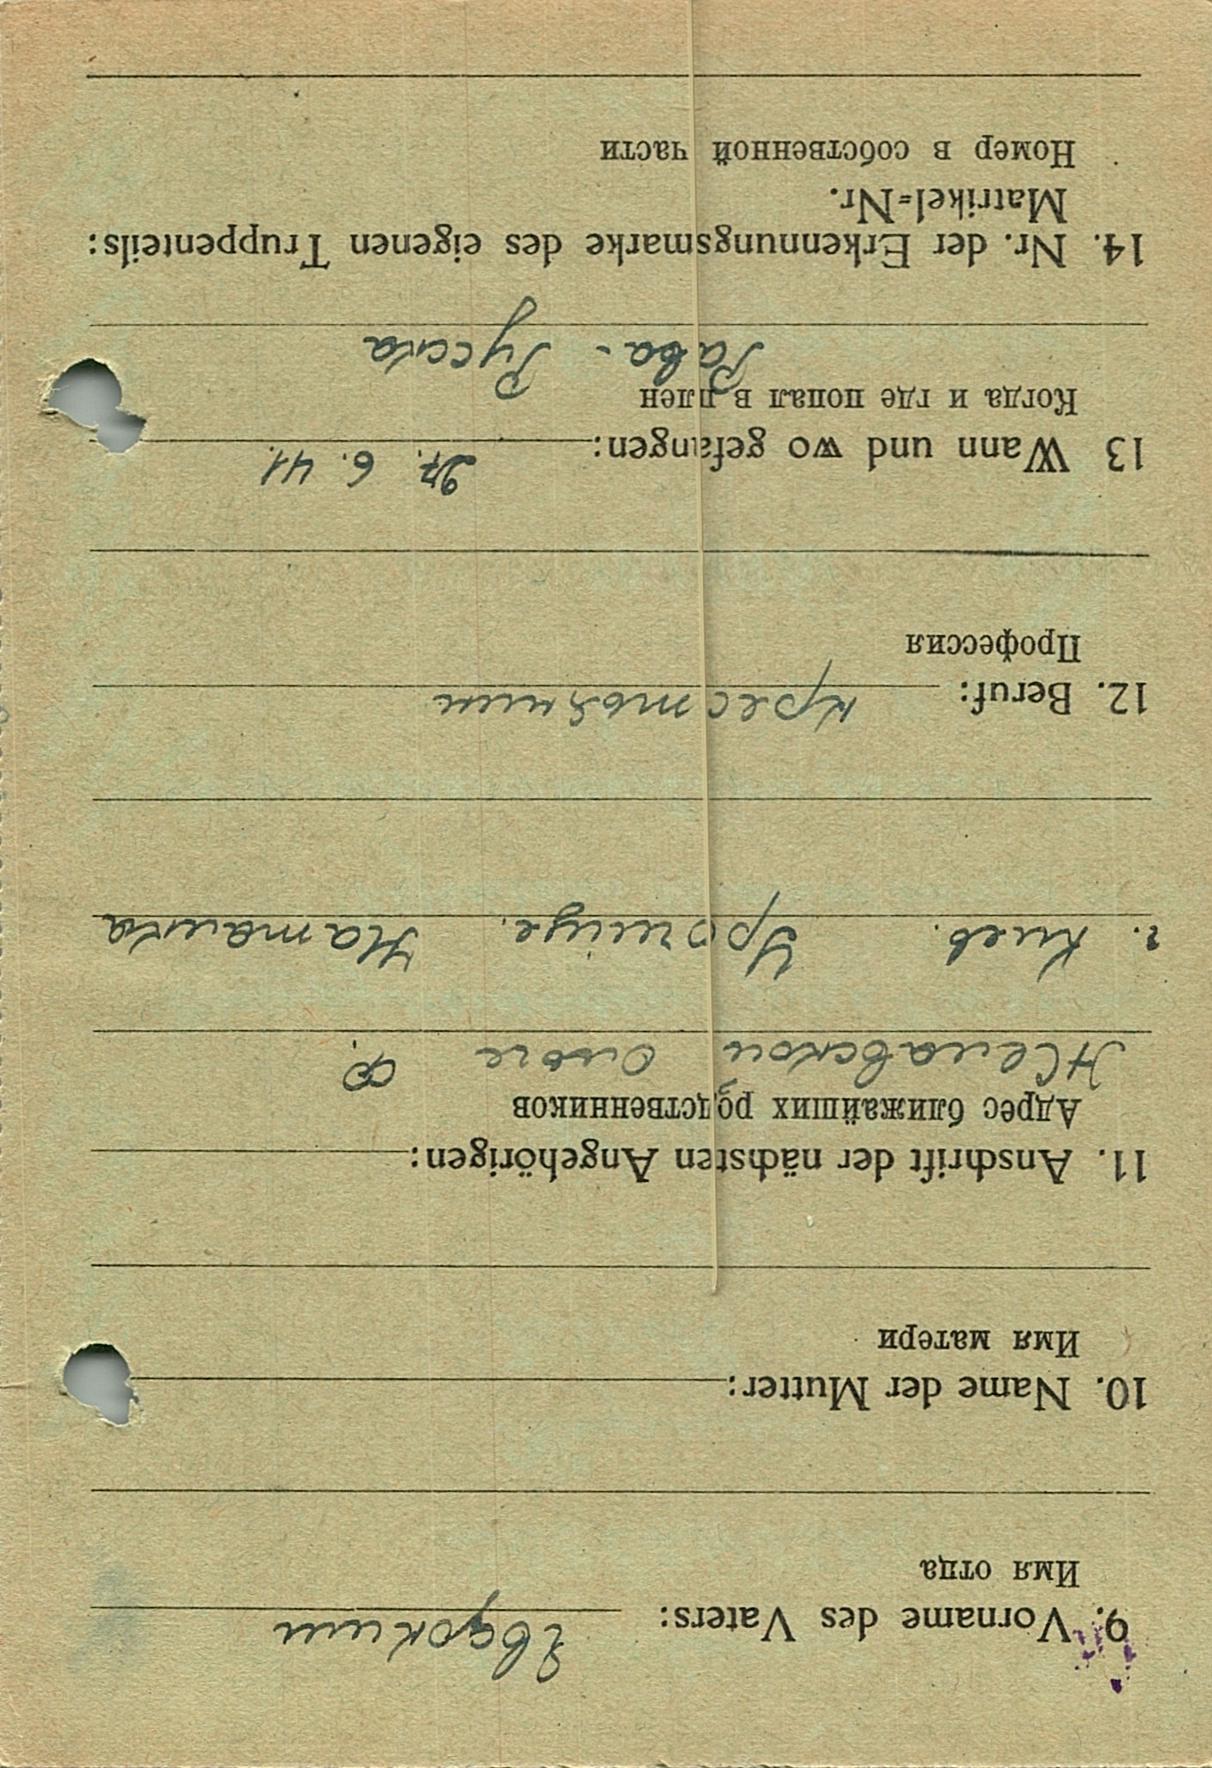 9. Vorname des Vaters: Евдоким
Имя отца
10. Name der Mutter:
Имя матери
11. Anschrift der nächsten Angehörigen:
Адрес ближайших родственников
Ольге Ф.
г. Киев.
12. Beruf: крестьянин
Профессия
13 Wann und wo gefangen: 27. 6. 41.
Когда и где попал в плен
Рава - Русска
14. Nr. der Erkennungsmarke des eigenen Truppenteils:
Matrikel=Nr.
Номер в собственной части